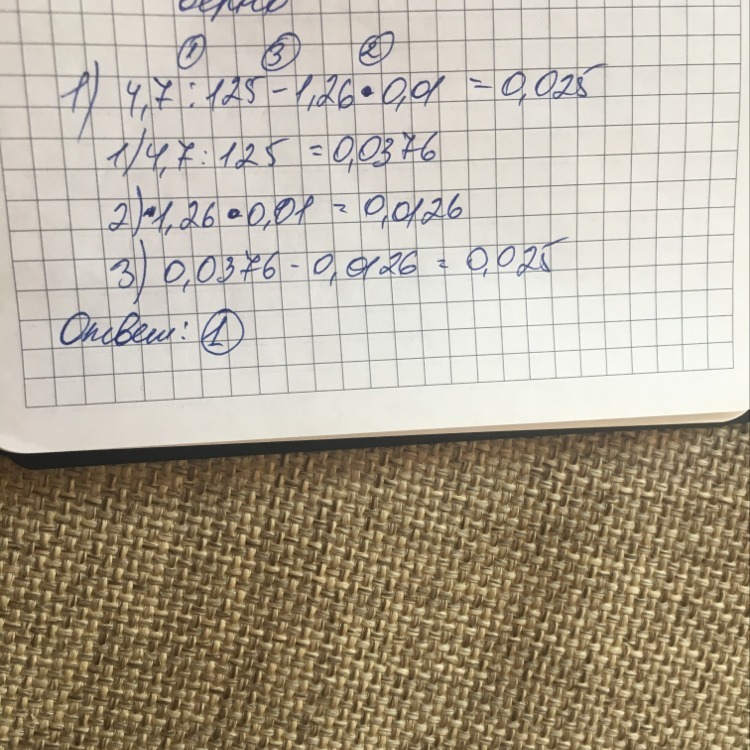 верно
① ③ ②
1) 4,7 : 125 - 1,26 • 0,01 = 0,025
1) 4,7 : 125 = 0,0376
2) 1,26 • 0,01 = 0,0126
3) 0,0376 - 0,0126 = 0,025
Ответ: ①